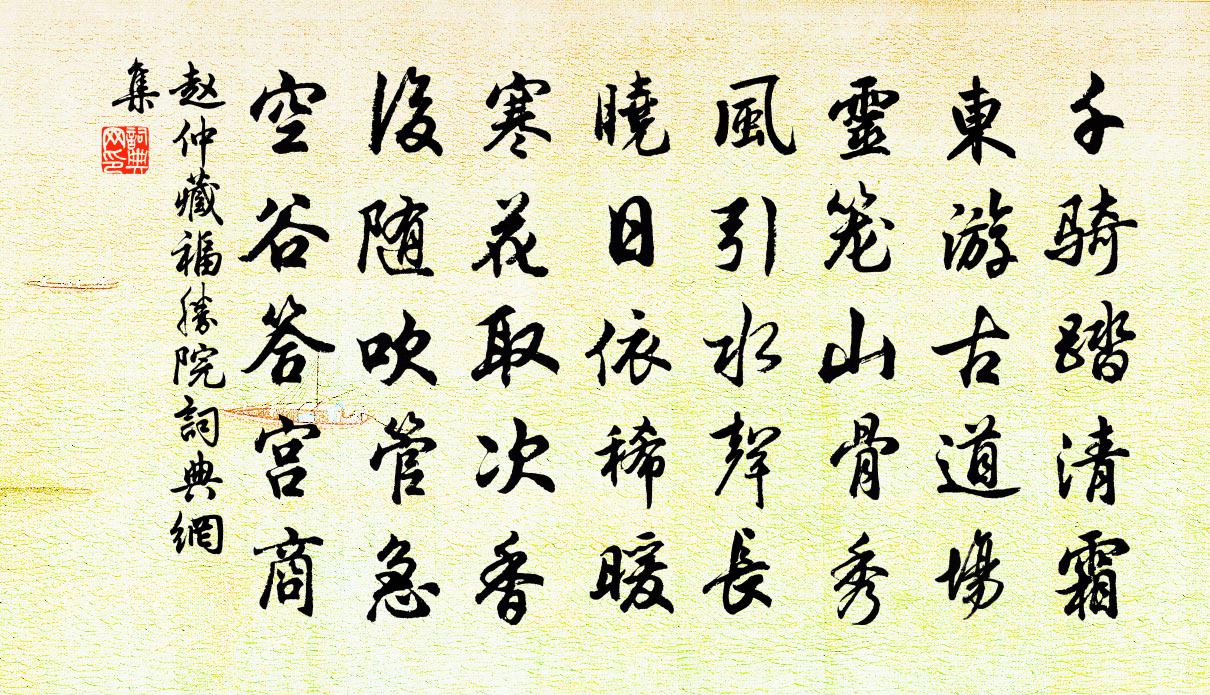 千骑踏清霜
東游古道場
靈笼山骨秀
風引水聲長
曉日依稀暖
寒花取次香
後随吹管急
空谷答宫商
赵仲藏福勝院詞典網
集
詞典网印